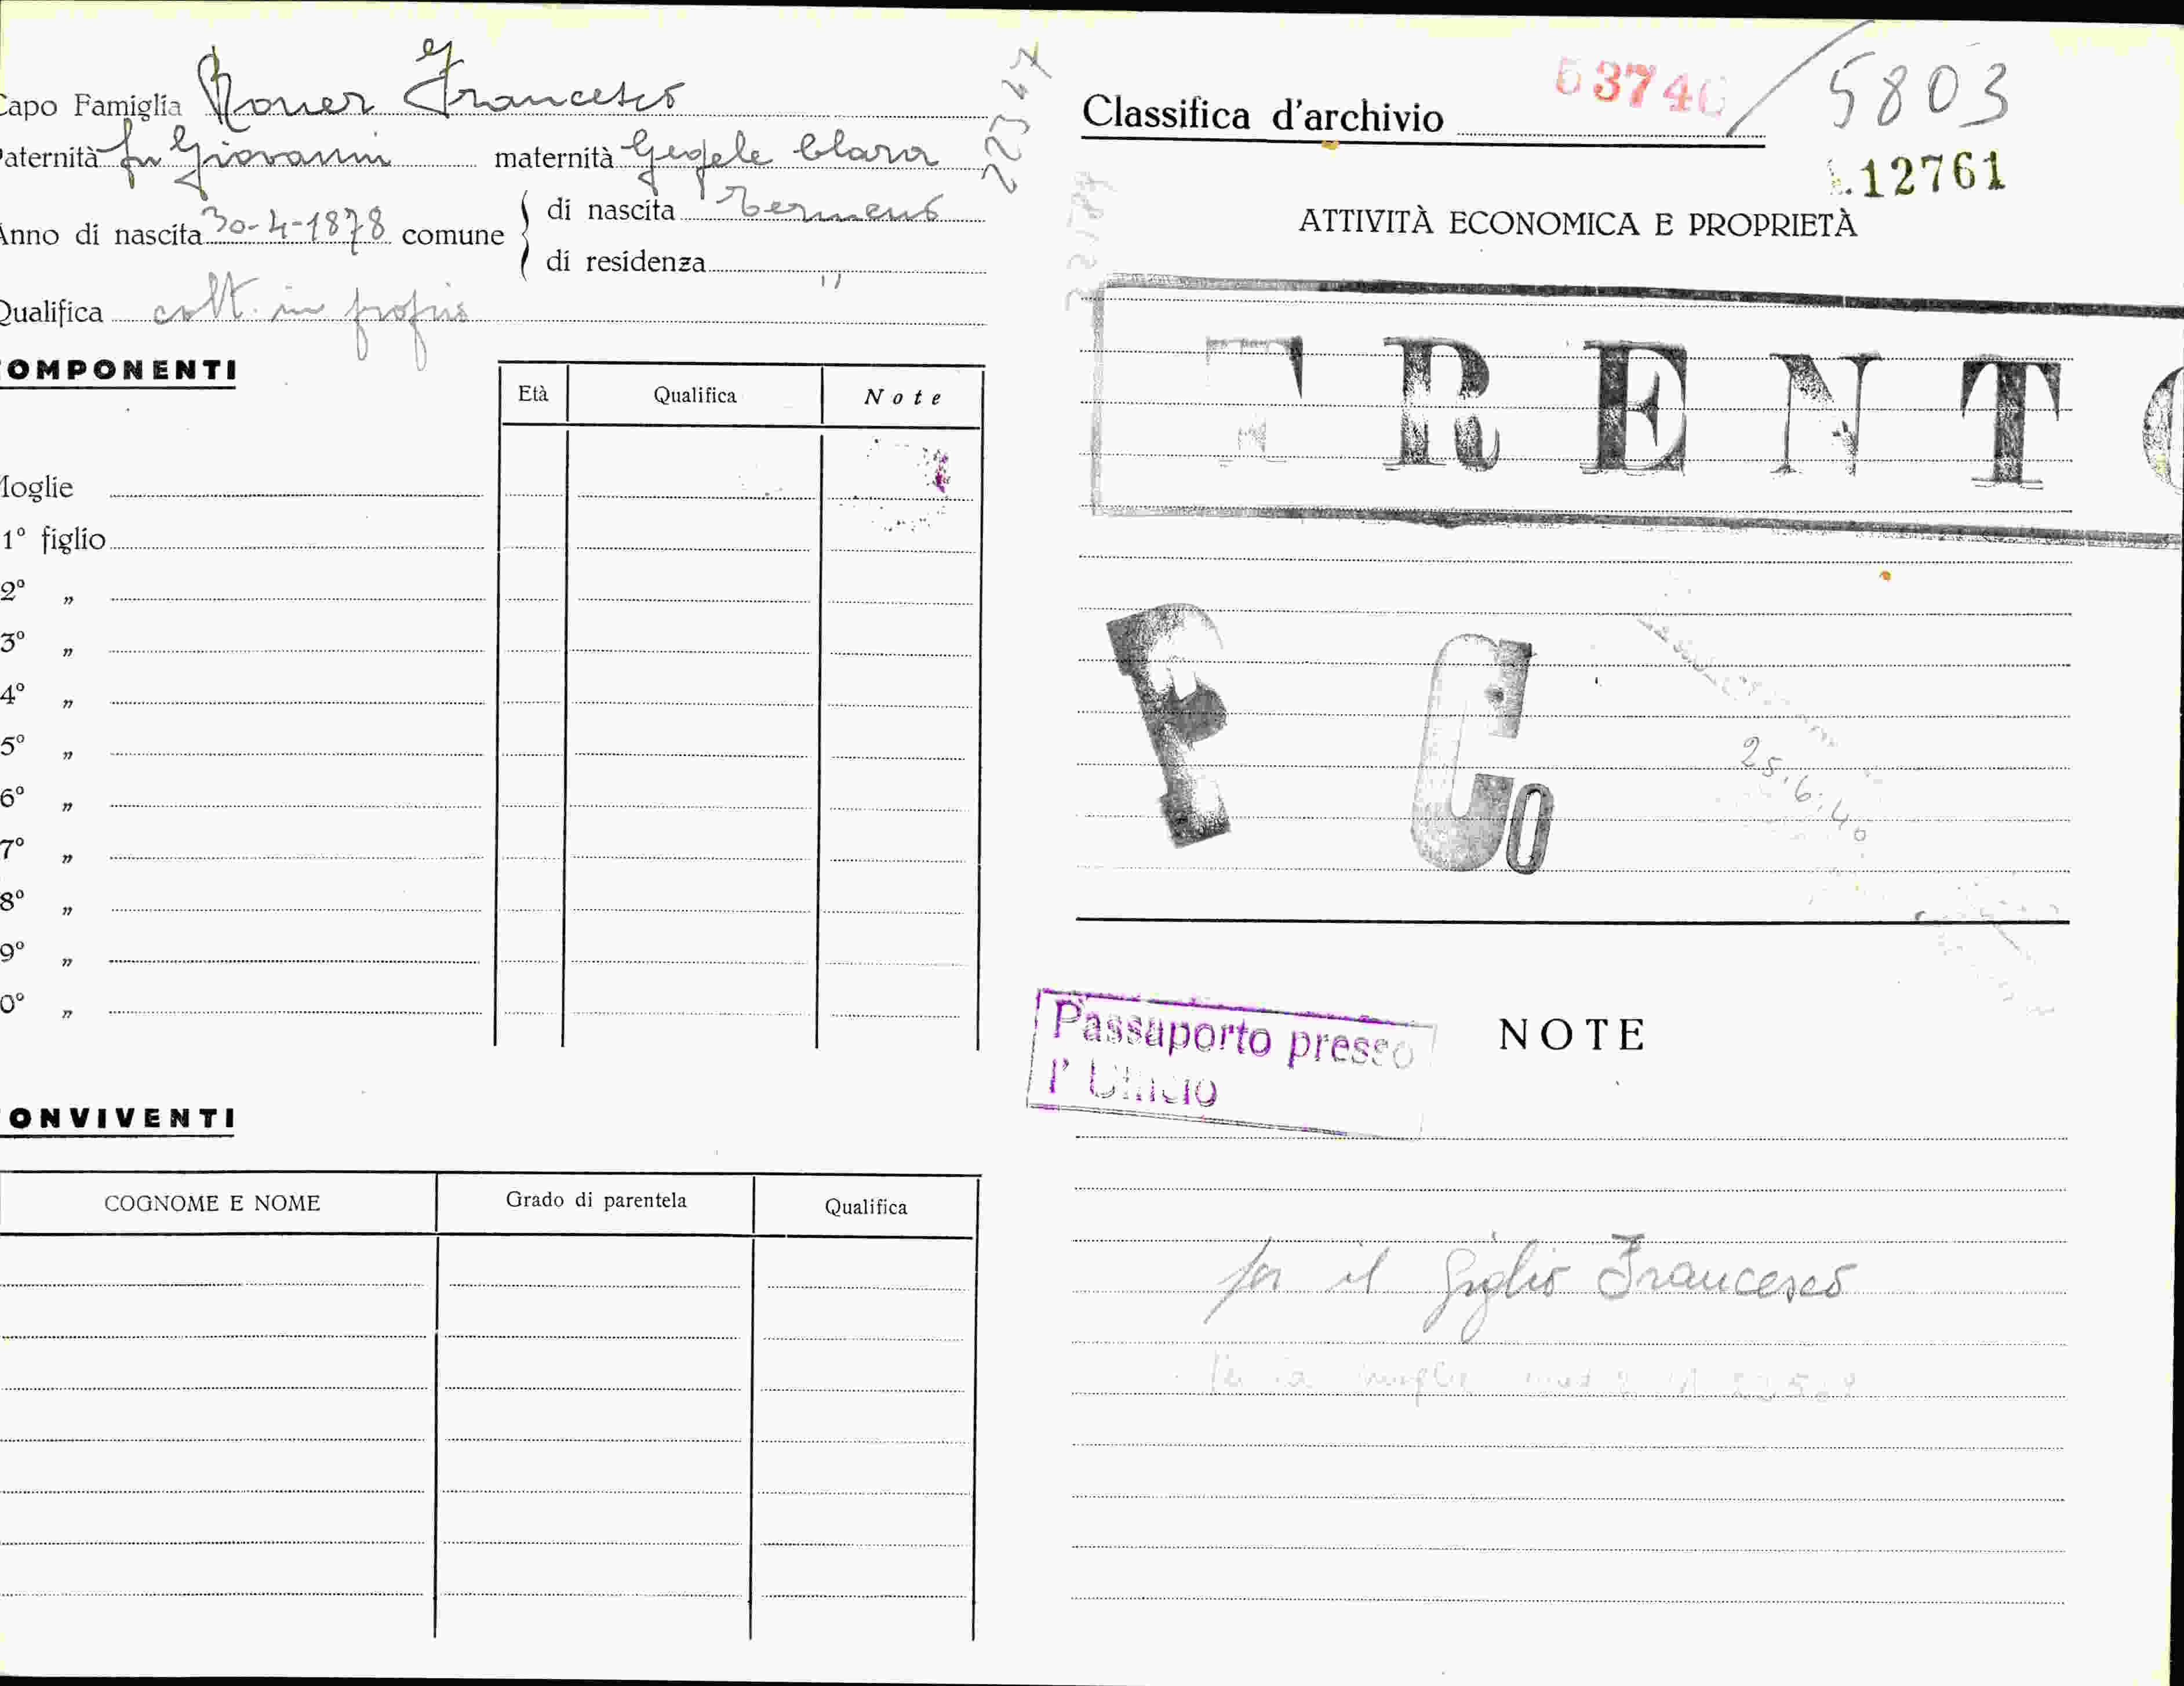 Capo Famiglia Roner Francesco
Paternità fu Giovanni maternità Clara
Anno di nascita 30-4-1878 comune di nascita Termeno
di residenza "
Qualifica colt. in proprio
COMPONENTI
Età Qualifica Note
Moglie
1º figlio
2º "
3º "
4º "
5º "
6º "
7º "
8º "
9º "
10º "
CONVIVENTI
COGNOME E NOME Grado di parentela Qualifica
22347
Classifica d'archivio 53746 / 5803
12761
ATTIVITÀ ECONOMICA E PROPRIETÀ
TRENTO
F Co
25.6.40
Passaporto presso
l'Ufficio
NOTE
per il figlio Francesco
Per la moglie